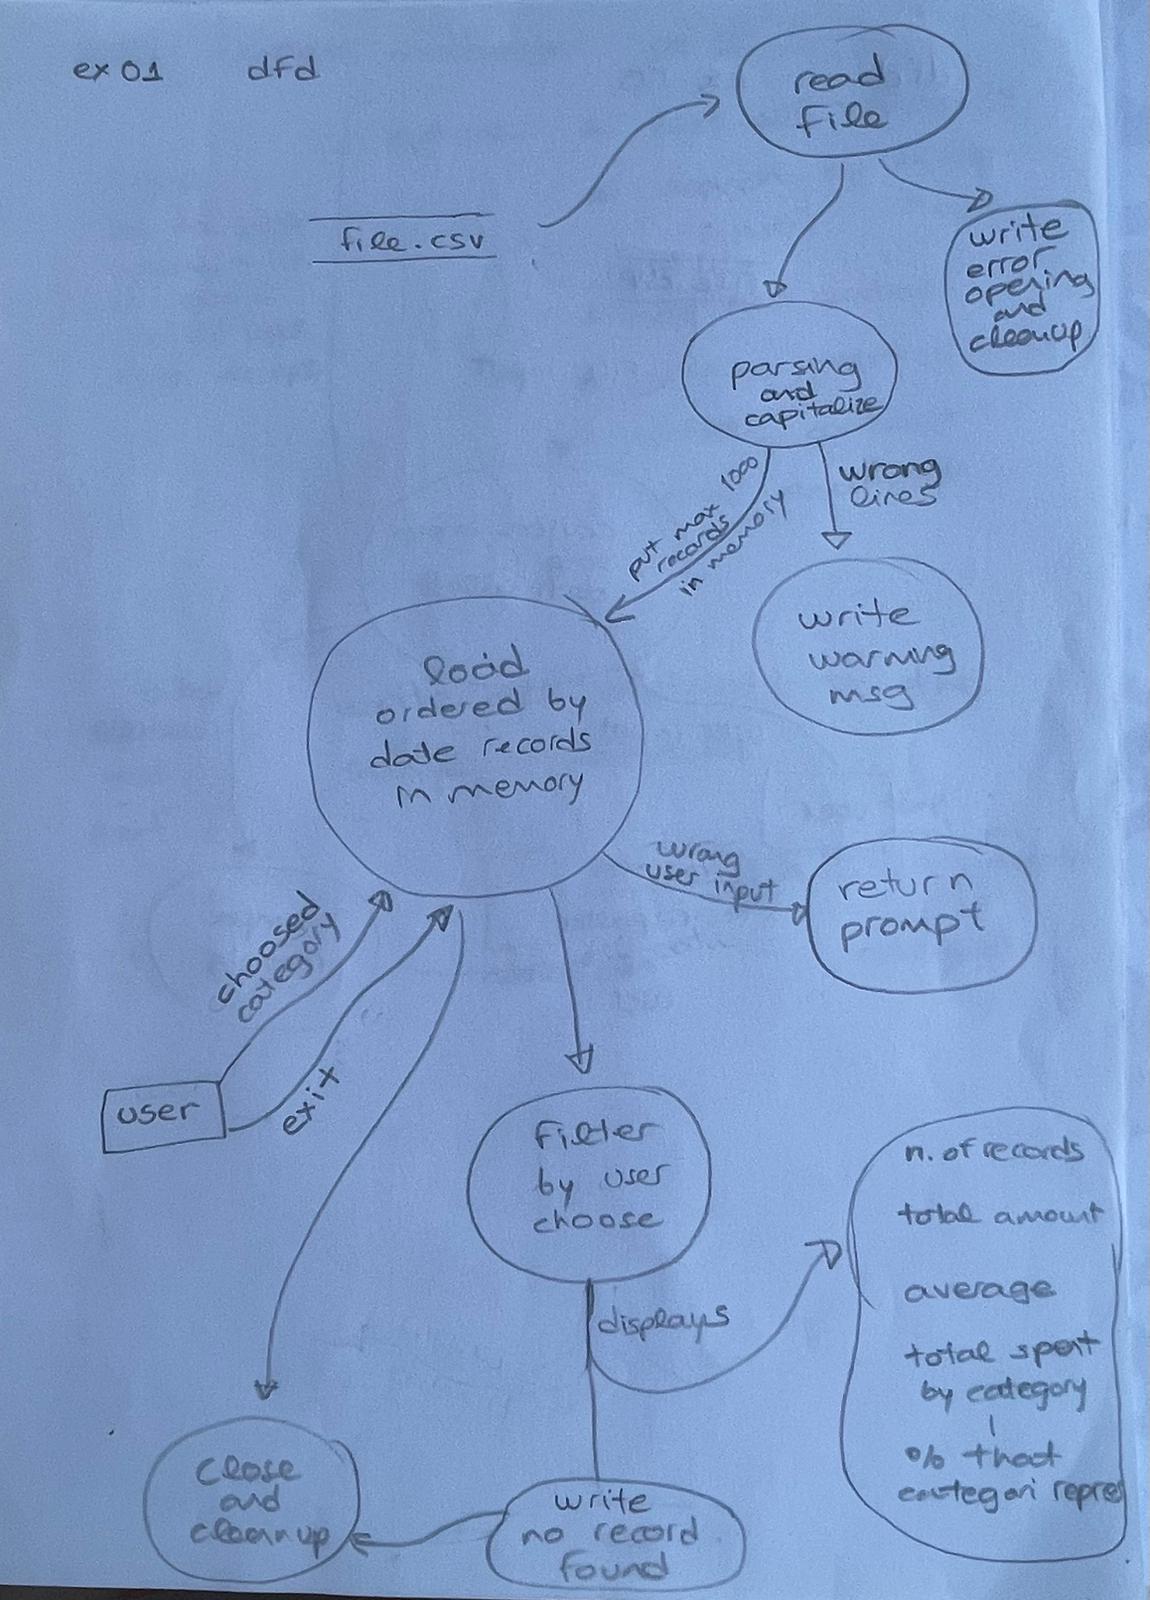 ex 01 dfd
read
file
file.csv
write
error
opening
and
cleanup
parsing
and
capitalize
put max 1000
records
in memory
wrong
lines
write
warning
msg
load
ordered by
date records
in memory
wrong
user input
return
prompt
choosed
category
exit
user
filter
by user
choose
displays
n. of records
total amount
average
total spent
by category
% that
categori repres
close
and
cleanup
write
no record
found